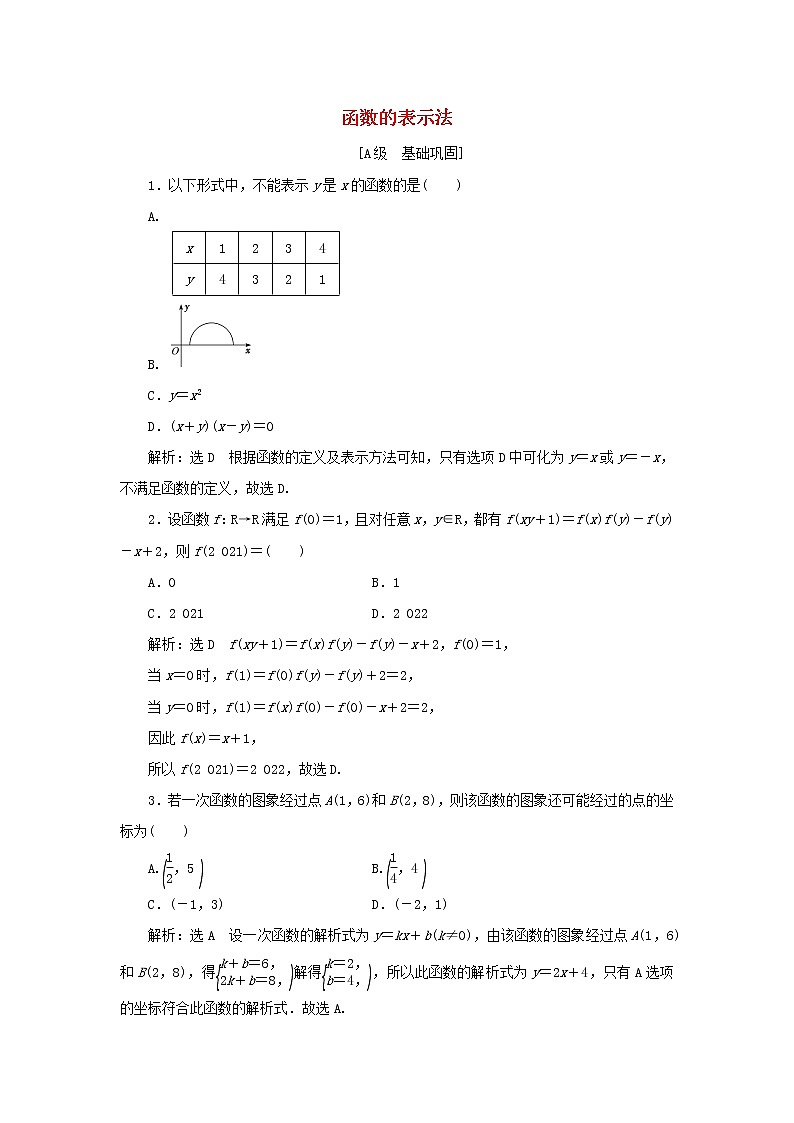 函数的表示法
[A级　基础巩固]
1．以下形式中，不能表示 y 是 x 的函数的是(　　)
A.
x 1 2 3 4
y 4 3 2 1
y
O x
B.
C．y＝x²
D．(x＋y)(x－y)＝0
解析：选 D　根据函数的定义及表示方法可知，只有选项 D 中可化为 y＝x 或 y＝－x，
不满足函数的定义，故选 D.
2．设函数 f：R→R 满足 f(0)＝1，且对任意 x，y∈R，都有 f(xy＋1)＝f(x)f(y)－f(y)
－x＋2，则 f(2 021)＝(　　)
A．0　　B．1
C．2 021　　D．2 022
解析：选 D　f(xy＋1)＝f(x)f(y)－f(y)－x＋2，f(0)＝1，
当 x＝0 时，f(1)＝f(0)f(y)－f(y)＋2＝2，
当 y＝0 时，f(1)＝f(x)f(0)－f(0)－x＋2＝2，
因此 f(x)＝x＋1，
所以 f(2 021)＝2 022，故选 D.
3．若一次函数的图象经过点 A(1，6)和 B(2，8)，则该函数的图象还可能经过的点的坐
标为(　　)
A.(1/2，5)　　B.(1/4，4)
C．(－1，3)　　D．(－2，1)
解析：选 A　设一次函数的解析式为 y＝kx＋b(k≠0)，由该函数的图象经过点 A(1，6)
和 B(2，8)，得{k＋b＝6，2k＋b＝8，)解得{k＝2，b＝4，)，所以此函数的解析式为 y＝2x＋4，只有 A 选项
的坐标符合此函数的解析式．故选 A.